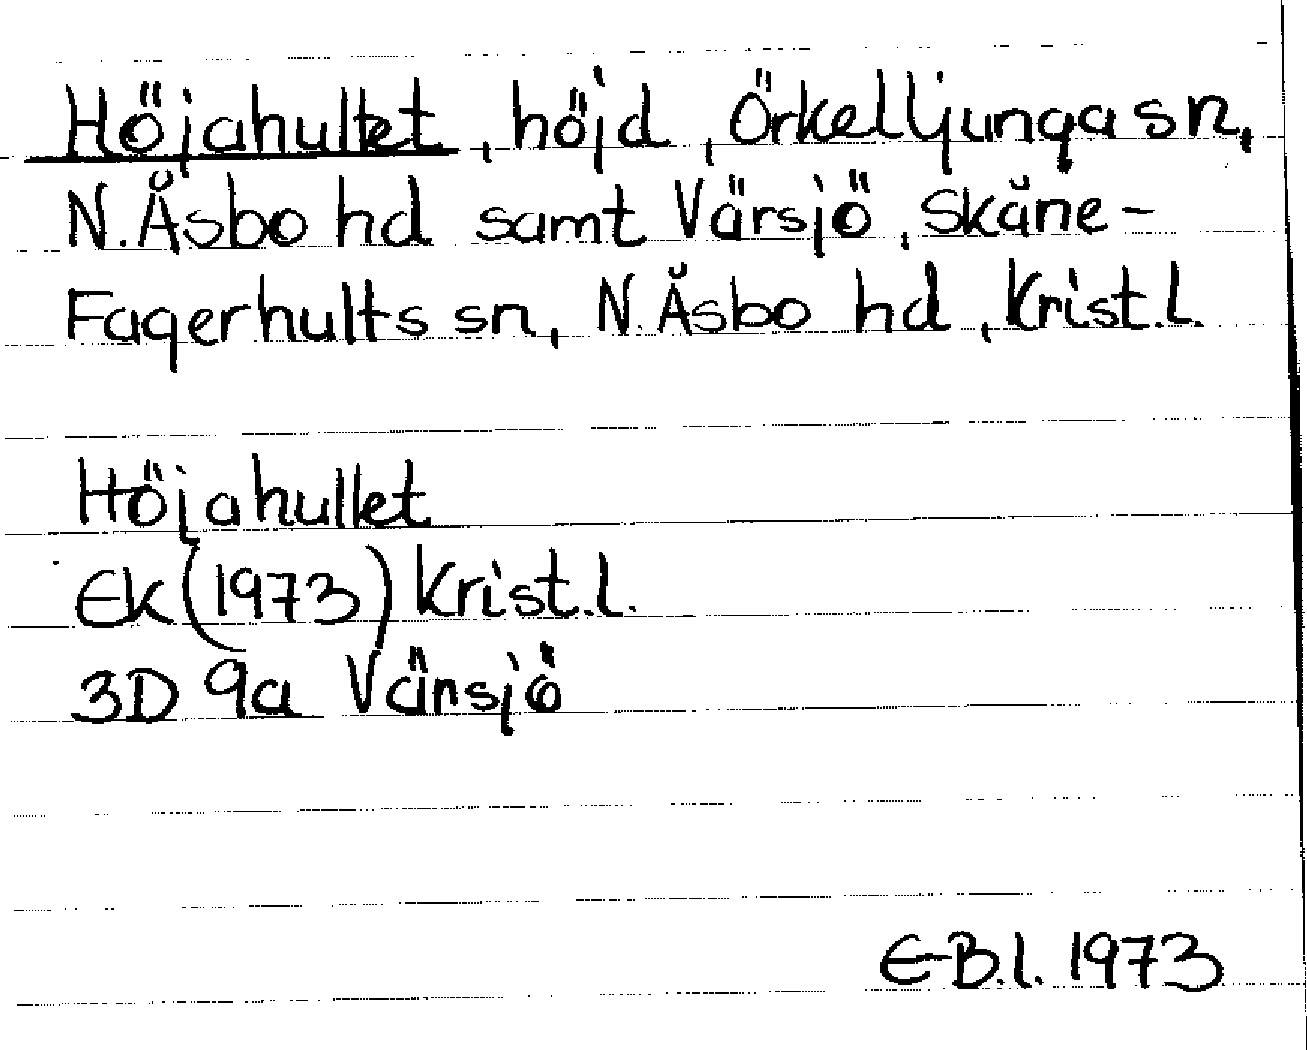 Höjahultet, höjd, Örkelljunga sn,
N. Åsbo hd samt Värsjö, Skåne-
Fagerhults sn, N. Åsbo hd, Krist.l.
Höjahullet
Ek (1973) Krist.l.
3D 9a Vänsjö
E-B.l. 1973